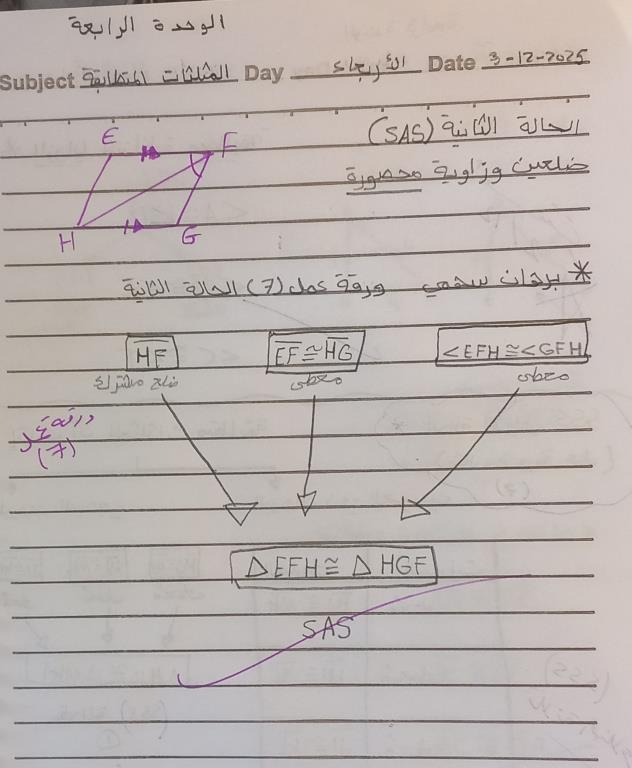 الوحدة الرابعة
Subject المثلثات المتطابقة Day الأربعاء Date 3-12-2025
الحالة الثانية (SAS)
ضلعين وزاوية محصورة
E F
H G
* برهان سهمي ورقة عمل (7) الحالة الثانية
HF EF ≅ HG <EFH ≅ <GFH
ضلع مشترك معطى معطى
ورقة عمل
(7)
△ EFH ≅ △ HGF
SAS